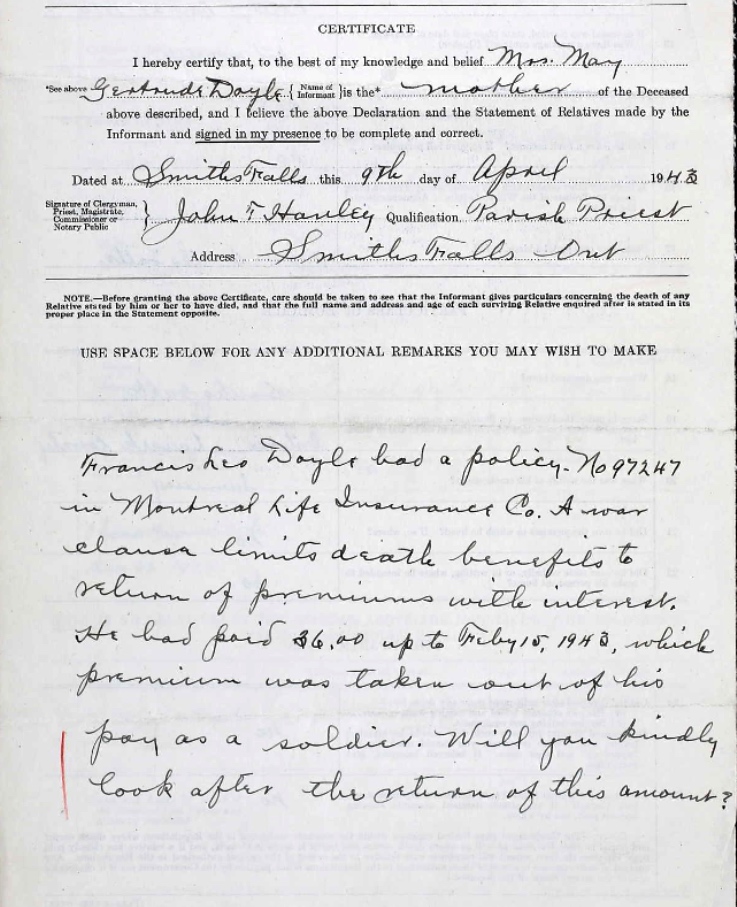 CERTIFICATE
I hereby certify that, to the best of my knowledge and belief Mrs. May
*See above Gertrude Doyle { Name of Informant } is the* mother of the Deceased
above described, and I believe the above Declaration and the Statement of Relatives made by the
Informant and signed in my presence to be complete and correct.
Dated at Smiths Falls this 9th day of April 1943
Signature of Clergyman, Priest, Magistrate, Commissioner or Notary Public } John T Hanley Qualification Parish Priest
Address Smiths Falls Ont
NOTE.—Before granting the above Certificate, care should be taken to see that the Informant gives particulars concerning the death of any
Relative stated by him or her to have died, and that the full name and address and age of each surviving Relative enquired after is stated in its
proper place in the Statement opposite.
USE SPACE BELOW FOR ANY ADDITIONAL REMARKS YOU MAY WISH TO MAKE
Francis Leo Doyle had a policy. No 97247
in Montreal Life Insurance Co. A war
clause limits death benefits to
return of premiums with interest.
He had paid 36.00 up to Feby 15, 1943, which
premium was taken out of his
pay as a soldier. Will you kindly
look after the return of this amount?